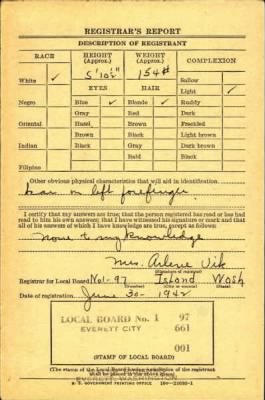 REGISTRAR'S REPORT
DESCRIPTION OF REGISTRANT
RACE HEIGHT (Approx.) WEIGHT (Approx.) COMPLEXION
White ✓ 5' 10½" 154# Sallow
EYES HAIR Light ✓
Negro Blue ✓ Blonde ✓ Ruddy
Gray Red Dark
Oriental Hazel Brown Freckled
Brown Black Light brown
Indian Black Gray Dark brown
Bald Black
Filipino
Other obvious physical characteristics that will aid in identification
Scar on left forefinger
I certify that my answers are true; that the person registered has read or has had
read to him his own answers; that I have witnessed his signature or mark and that
all of his answers of which I have knowledge are true, except as follows:
None to my knowledge
Mrs. Arlene Vik
(Signature of registrar)
Registrar for Local Board No 1-97 Island Wash
(Number) (City or county) (State)
Date of registration June 30- 1942
LOCAL BOARD No. 1 97
EVERETT CITY 661
001
(STAMP OF LOCAL BOARD)
(The stamp of the Local Board having jurisdiction of the registrant
shall be placed in the above space)
EVERETT, WASHINGTON
U. S. GOVERNMENT PRINTING OFFICE 16—21630-1